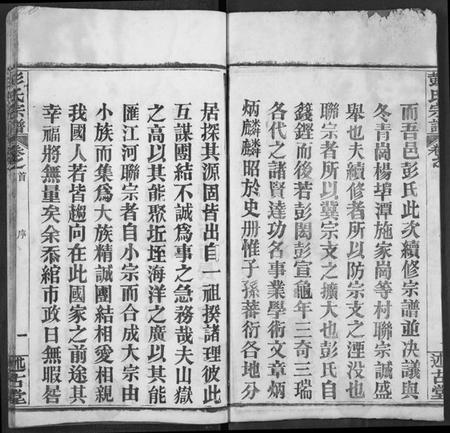 彭氏宗譜
卷之
述古堂
而吾邑彭氏此次續修宗譜並决議與
冬青崗楊塘潭施家崗等村聯宗誠盛
舉也夫續修者所以防宗支之湮没也
聯宗者所以冀宗支之擴大也彭氏自
籛鏗而後若彭閎彭宣龜年三奇三瑞
各代之諸賢達功名事業學術文章炳
炳麟麟昭於史册惟子孫蕃衍各地分
居探其源固皆出自一祖揆諸理彼此
互謀團結不誠爲事之急務哉夫山嶽
之高以其能聚坵垤海洋之廣以其能
匯江河聯宗者自小宗而合成大宗由
小族而集爲大族精誠團結相愛相親
我國人若皆趨向在此國家之前途其
幸福將無量矣余忝綰市政日無暇晷
彭氏宗譜
卷之首
序
一
述古堂